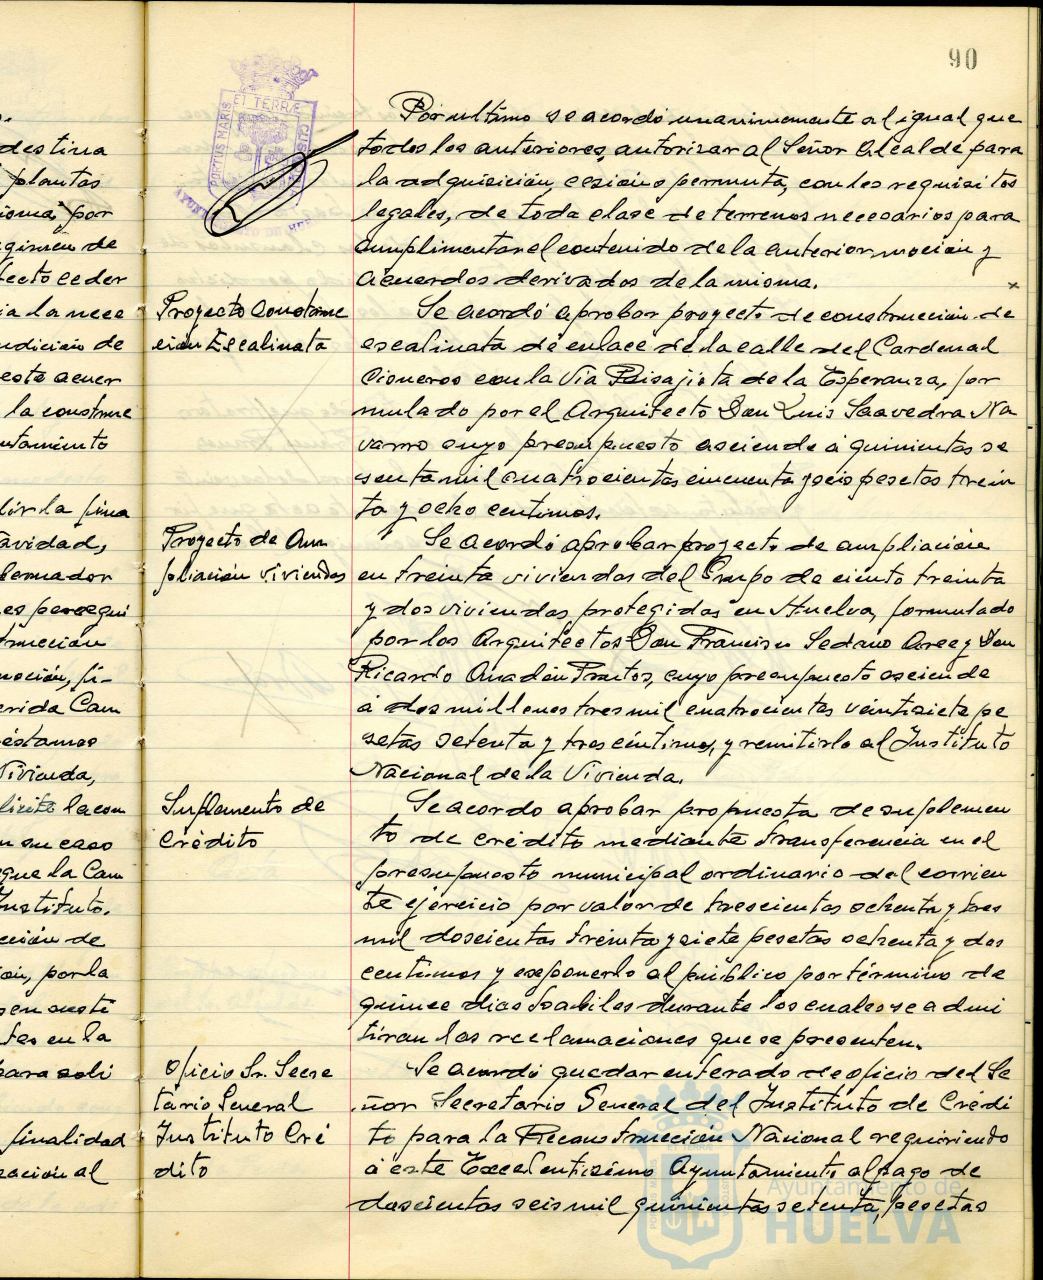 90
PORTUS MARIS
ET TERRÆ
Por ultimo se acordó unanimemente al igual que
todos los anteriores, autorizar al Señor Alcalde para
la adquisición, cesión o permuta, con los requisitos
legales, de toda clase de terrenos necesarios para
cumplimentar el contenido de la anterior moción y
acuerdos derivados de la misma.
Proyecto construc
ción Escalinata
Se acordó aprobar proyecto de construcción de
escalinata de enlace de la calle del Cardenal
Cisneros con la Vía Paisajista de la Esperanza, for
mulado por el Arquitecto Don Luis Saavedra Na
varro cuyo presupuesto asciende a quinientas se
senta mil cuatrocientas cincuenta y seis pesetas trein
ta y ocho centimos.
Proyecto de Am
pliación viviendas
Se acordó aprobar proyecto de ampliación
en treinta viviendas del Grupo de ciento treinta
y dos viviendas protegidas en Huelva, formulado
por los Arquitectos Don Francisco Sedano Arce y Don
Ricardo Anadón Frutos, cuyo presupuesto asciende
a dos millones tres mil cuatrocientas veintisiete pe
setas setenta y tres céntimos, y remitirlo al Instituto
Nacional de la Vivienda.
Suplemento de
Crédito
Se acordo aprobar propuesta de suplemen
to de crédito mediante transferencia en el
presupuesto municipal ordinario del corrien
te ejercicio por valor de trescientas ochenta y tres
mil doscientas treinta y siete pesetas ochenta y dos
centimos y exponerlo al público por término de
quince dias habiles durante los cuales se admi
tiran las reclamaciones que se presenten.
Oficio Sr. Secre
tario General
Instituto Cré
dito
Se acordó quedar enterado de oficio del Se
ñor Secretario General del Instituto de Crédi
to para la Reconstrucción Nacional requiriendo
a este Excelentisimo Ayuntamiento al pago de
doscientas seis mil quinientas setenta, pesetas
destina
plantas
por
de
ceder
la nece
de
este acuer
la construc
lir la fina
Vivienda,
la con
en su caso
que la Cam
Instituto.
de
por la
en la
para soli
finalidad
al
Ayuntamiento de
HUELVA